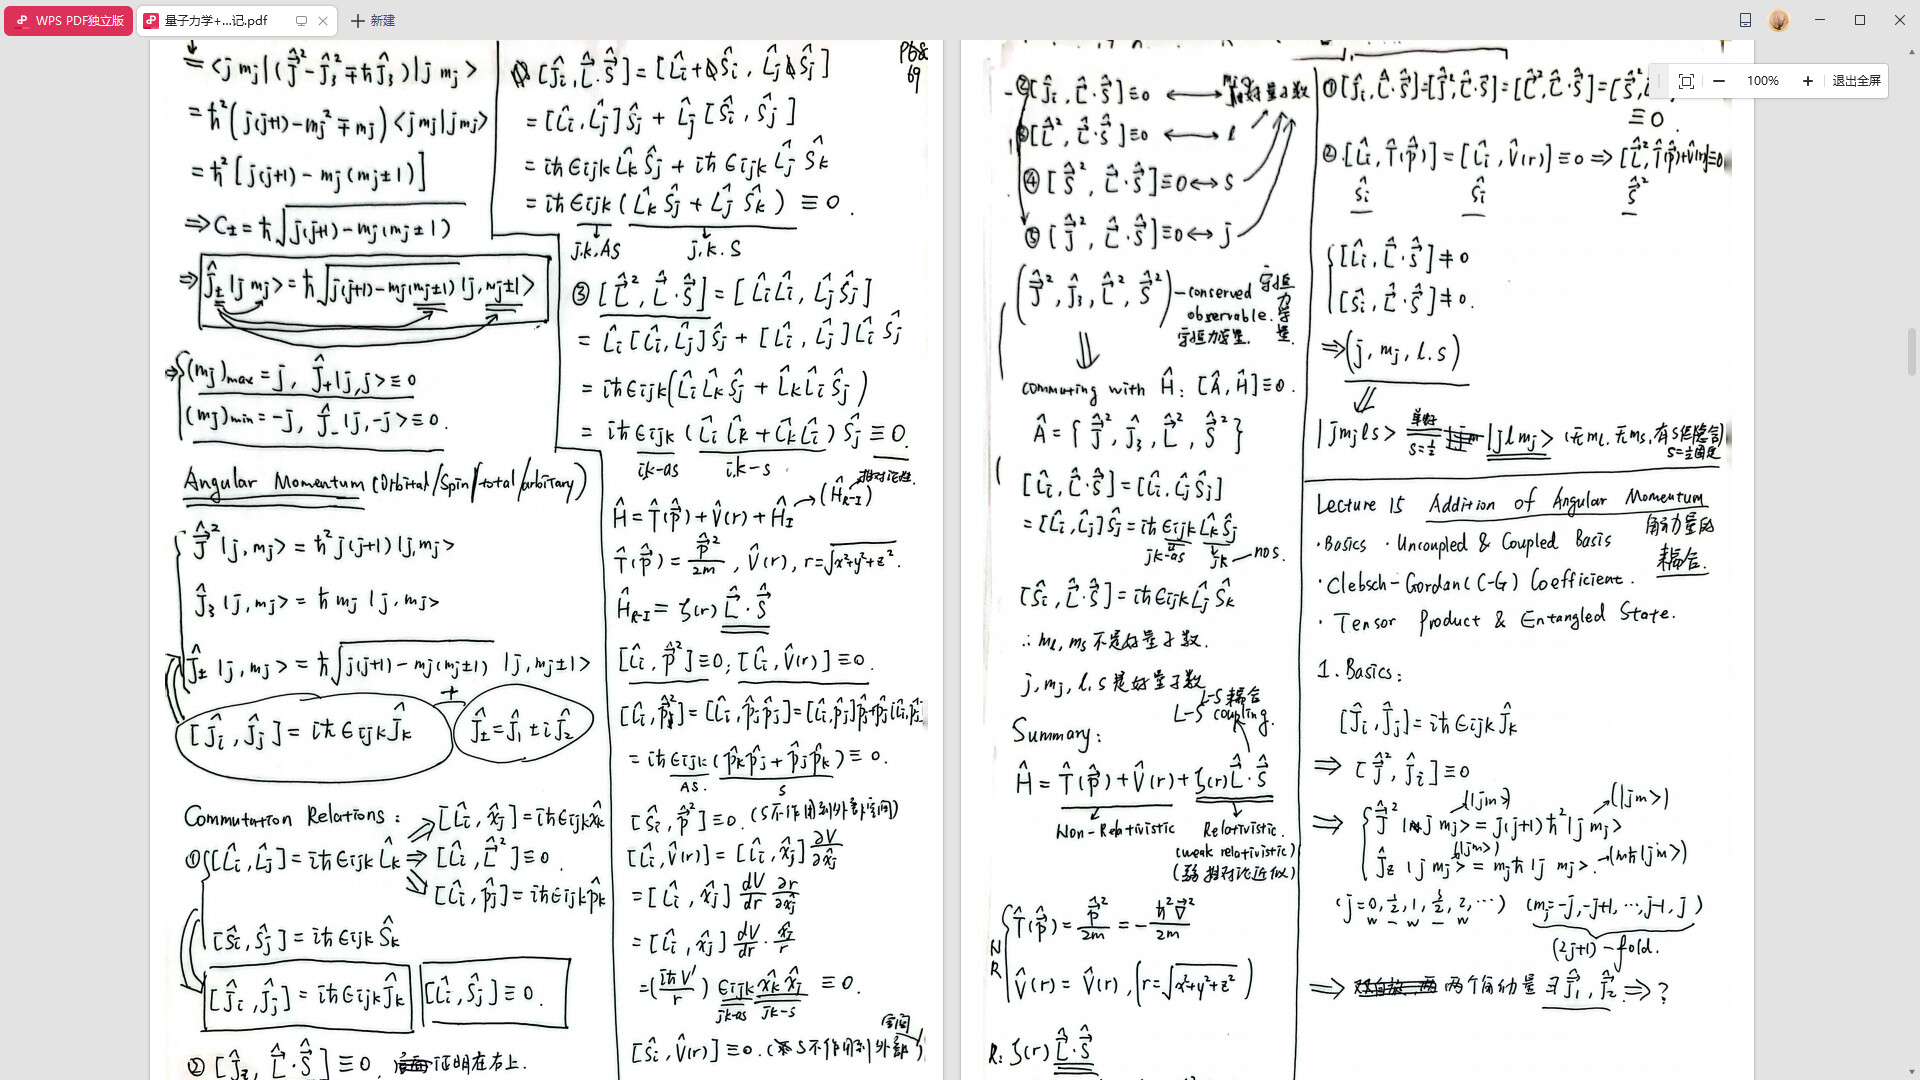 WPS PDF独立版
量子力学+...记.pdf
新建
100%
退出全屏
= <j mj|(Ĵ² - Ĵ₃² ∓ ħĴ₃)|j mj>
= ħ²(j(j+1) - mj² ∓ mj) <jmj|jmj>
= ħ²[j(j+1) - mj(mj±1)]
⇒ C± = ħ√(j(j+1) - mj(mj±1))
⇒ Ĵ±|j mj> = ħ√(j(j+1) - mj(mj±1)) |j, mj±1>
⇒ (mj)max = j, Ĵ₊|j,j> ≡ 0
(mj)min = -j, Ĵ₋|j,-j> ≡ 0.
Angular Momentum (Orbital/Spin/total/arbitary)
Ĵ²|j, mj> = ħ² j(j+1)|j,mj>
Ĵ₃|j, mj> = ħ mj |j, mj>
Ĵ±|j, mj> = ħ√(j(j+1) - mj(mj±1)) |j, mj±1>
[Ĵi, Ĵj] = iħ ϵijk Ĵk + Ĵ± = Ĵ₁ ± iĴ₂
Commutation Relations: [L̂i, x̂j] = iħϵijk x̂k
① [L̂i, L̂j] = iħϵijk L̂k ⇒ [L̂i, L̂²] ≡ 0.
[L̂i, p̂j] = iħϵijk p̂k
[Ŝi, Ŝj] = iħϵijk Ŝk
[Ĵi, Ĵj] = iħϵijk Ĵk [L̂i, Ŝj] ≡ 0.
② [Ĵz, L̂·Ŝ] ≡ 0. 证明在右上.
P68
69
[Ĵi, L̂·Ŝ] = [L̂i + Ŝi, L̂j Ŝj]
= [L̂i, L̂j]Ŝj + L̂j[Ŝi, Ŝj]
= iħϵijk L̂k Ŝj + iħϵijk L̂j Ŝk
= iħϵijk (L̂k Ŝj + L̂j Ŝk) ≡ 0.
j.k.AS j.k.S
③ [L̂², L̂·Ŝ] = [L̂i L̂i, L̂j Ŝj]
= L̂i[L̂i, L̂j]Ŝj + [L̂i, L̂j]L̂i Ŝj
= iħϵijk(L̂i L̂k Ŝj + L̂k L̂i Ŝj)
= iħϵijk(L̂i L̂k + L̂k L̂i)Ŝj ≡ 0.
ik-as i.k-s
Ĥ = T̂(p̂) + V̂(r) + ĤI → (ĤR-I) 相对论性.
T̂(p̂) = p̂²/2m, V̂(r), r = √(x²+y²+z²).
ĤR-I = ζ(r) L̂·Ŝ
[L̂i, p̂²] ≡ 0; [L̂i, V̂(r)] ≡ 0.
[L̂i, p̂²] = [L̂i, p̂j p̂j] = [L̂i, p̂j]p̂j + p̂j[L̂i, p̂j]
= iħϵijk(p̂k p̂j + p̂j p̂k) ≡ 0.
AS. S
[Ŝi, p̂²] ≡ 0. (S不作用到外部空间)
[L̂i, V̂(r)] = [L̂i, x̂j] ∂V/∂x̂j
= [L̂i, x̂j] dV/dr ∂r/∂x̂j
= [L̂i, x̂j] dV/dr · x̂j/r
= (iħV'/r) ϵijk x̂k x̂j ≡ 0.
jk-as jk-s
[Ŝi, V̂(r)] ≡ 0. (S不作用到外部空间)
② [Ĵi, L̂·Ŝ] ≡ 0 ⟷ mj 好量子数
③ [L̂², L̂·Ŝ] ≡ 0 ⟷ l
④ [Ŝ², L̂·Ŝ] ≡ 0 ↔ S
⑤ [Ĵ², L̂·Ŝ] ≡ 0 ↔ j
(Ĵ², Ĵ₃, L̂², Ŝ²) - conserved observable. 守恒力学量.
守恒力学量.
commuting with Ĥ: [Â, Ĥ] ≡ 0.
 = {Ĵ², Ĵ₃, L̂², Ŝ²}
[L̂i, L̂·Ŝ] = [L̂i, L̂j Ŝj]
= [L̂i, L̂j]Ŝj = iħϵijk L̂k Ŝj
jk-as jk — no s.
[Ŝi, L̂·Ŝ] = iħϵijk L̂j Ŝk
∴ ml, ms 不是好量子数.
j, mj, l, s 是好量子数
L-S 耦合
L-S coupling.
Summary:
Ĥ = T̂(p̂) + V̂(r) + ζ(r) L̂·Ŝ
Non-Relativistic Relativistic.
(weak relativistic)
(弱相对论近似)
NR T̂(p̂) = p̂²/2m = -ħ²∇²/2m
V̂(r) = V̂(r), (r = √(x²+y²+z²))
R: ζ(r) L̂·Ŝ
① [Ĵi, L̂·Ŝ] = [Ĵ², L̂·Ŝ] = [L̂², L̂·Ŝ] = [Ŝ²,
≡ 0.
② [L̂i, T̂(p̂)] = [L̂i, V̂(r)] ≡ 0 ⇒ [L̂², T̂(p̂)+V̂(r)] ≡ 0
Ŝi Ŝi Ŝ²
[L̂i, L̂·Ŝ] ≠ 0
[Ŝi, L̂·Ŝ] ≠ 0.
⇒ (j, mj, l, s)
|jmjls> S=½ |jlmj> (无ml, 无ms, 有s但隐含)
s=½固定
Lecture 15 Addition of Angular Momentum
角动量的耦合.
· Basics · Uncoupled & Coupled Basis
· Clebsch-Gordan (C-G) Coefficient.
· Tensor Product & Entangled State.
1. Basics:
[Ĵi, Ĵj] = iħϵijk Ĵk
⇒ [Ĵ², Ĵi] ≡ 0
(|jm>) (|jm>)
⇒ Ĵ²|j mj> = j(j+1)ħ²|j mj>
(|jm>)
Ĵz|j mj> = mjħ|j mj>. → (mħ|jm>)
(j = 0, ½, 1, 3/2, 2, ···) (mj = -j, -j+1, ···, j-1, j)
(2j+1) - fold.
⇒ 两个角动量 ∃ Ĵ₁, Ĵ₂ ⇒ ?